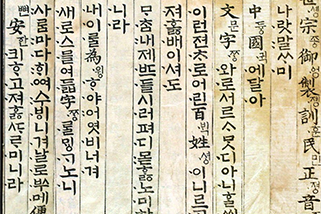 世솅宗조ᇰ御製訓民민正져ᇰ音
나랏말ᄊᆞ미
中듀ᇰ國귁에달아
文문字ᄍᆞᆼ와로서르ᄉᆞᄆᆞᆺ디아니ᄒᆞᆯᄊᆡ
이런젼ᄎᆞ로어린百ᄇᆡᆨ姓셔ᇰ이니르
져호ᇙ배이셔도
ᄆᆞᄎᆞᆷ내제ᄠᅳ들시러펴디몯ᄒᆞᇙ노미
니라
내이ᄅᆞᆯ爲윙ᄒᆞ야어엿비너겨
새로스믈여듧字ᄍᆞᆼᄅᆞᆯᄆᆡᇰᄀᆞ노니
사ᄅᆞᆷ마다ᄒᆡᅇᅧ수ᄫᅵ니겨날로ᄡᅮ메便
뼌安한킈ᄒᆞ고져ᄒᆞᇙᄯᆞᄅᆞ미니라